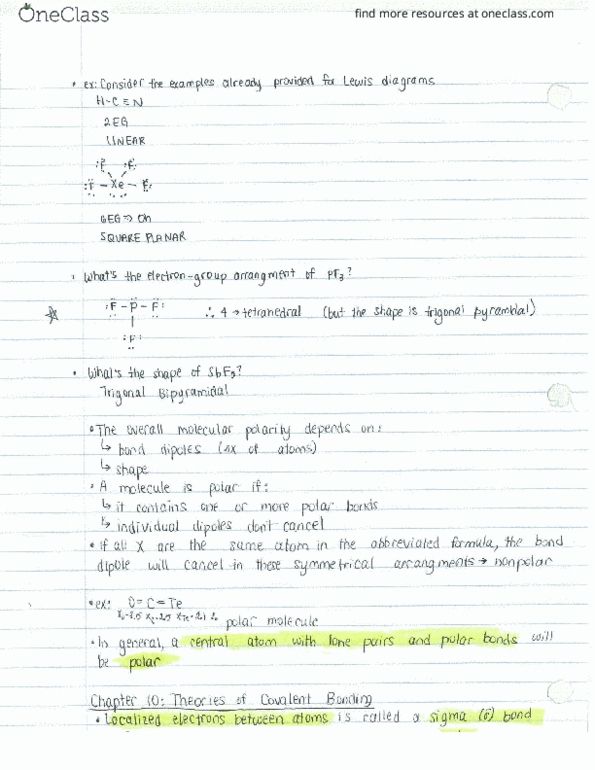 OneClass
find more resources at oneclass.com
• ex: Consider the examples already provided for Lewis diagrams
H-C≡N
2EG
LINEAR
:F: :F:
:F - Xe - F:
6EG ⇒ Oh
SQUARE PLANAR
• What's the electron-group arrangment of PF3?
:F - P - F: ∴ 4 → tetrahedral (but the shape is trigonal pyramidal)
:F:
• What's the shape of SbF5?
Trigonal Bipyramidal
• The overall molecular polarity depends on:
↳ bond dipoles (ΔX of atoms)
↳ shape
• A molecule is polar if:
↳ it contains one or more polar bonds
↳ individual dipoles don't cancel
• If all X are the same atom in the abbreviated formula, the bond
dipole will cancel in these symmetrical arrangments → nonpolar
• ex: O=C=Te
polar molecule
• In general, a central atom with lone pairs and polar bonds will
be polar
Chapter 10: Theories of Covalent Bonding
• Localized electrons between atoms is called a sigma (σ) bond